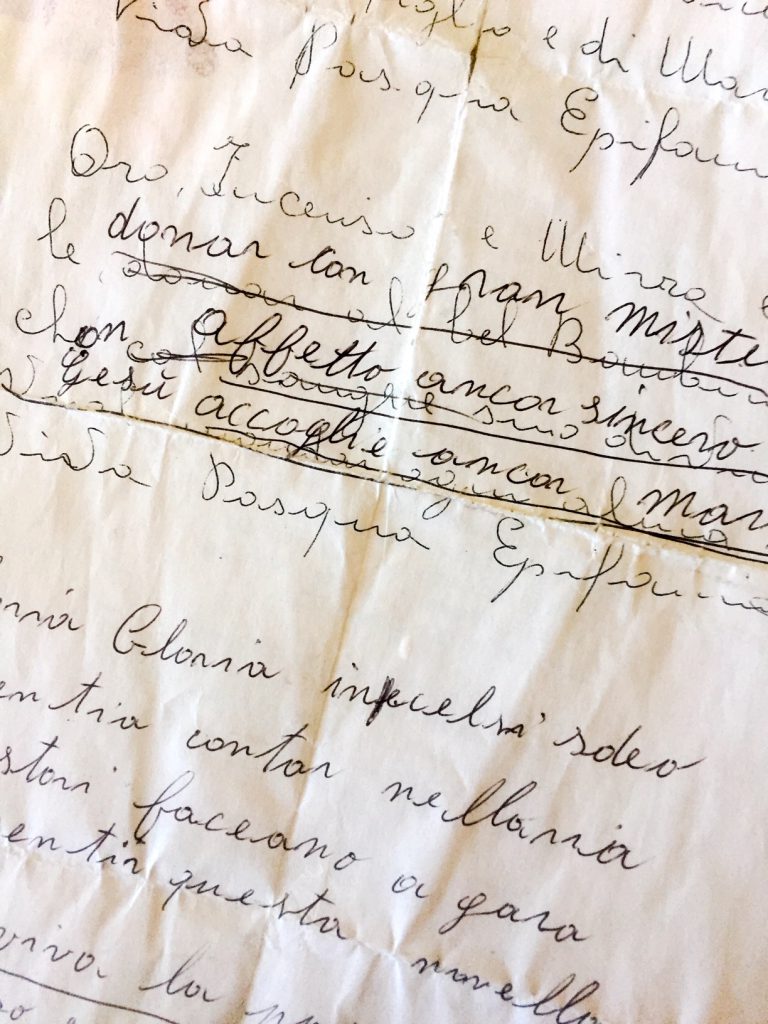 e di Mar
Viva Pasqua Epifan
Oro, Incenso e Mirra
le donar con gran miste
donar al bel Bambin
chon affetto ancor sincero
sangue suo
Gesù accoglie ancor Mar
ogni alma
Viva Pasqua Epifania
Gloria incelsi sdeo
entia contar nellaria
stori faceano a gara
entir questa novella
viva la